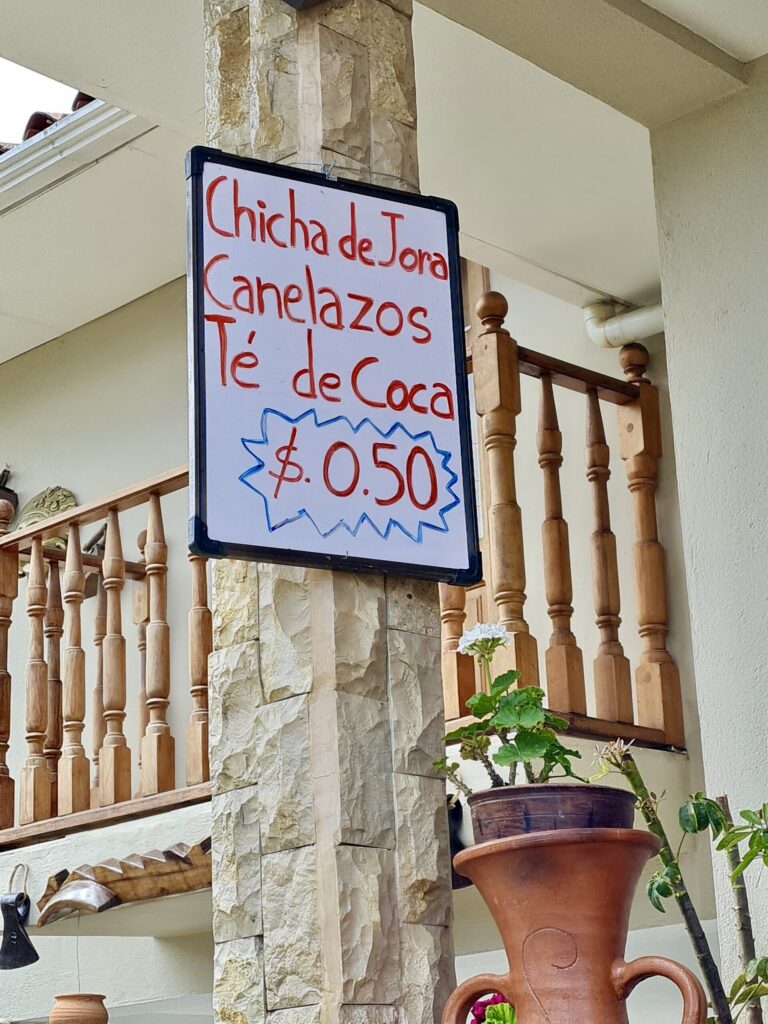 Chicha de Jora
Canelazos
Té de Coca
$. 0.50